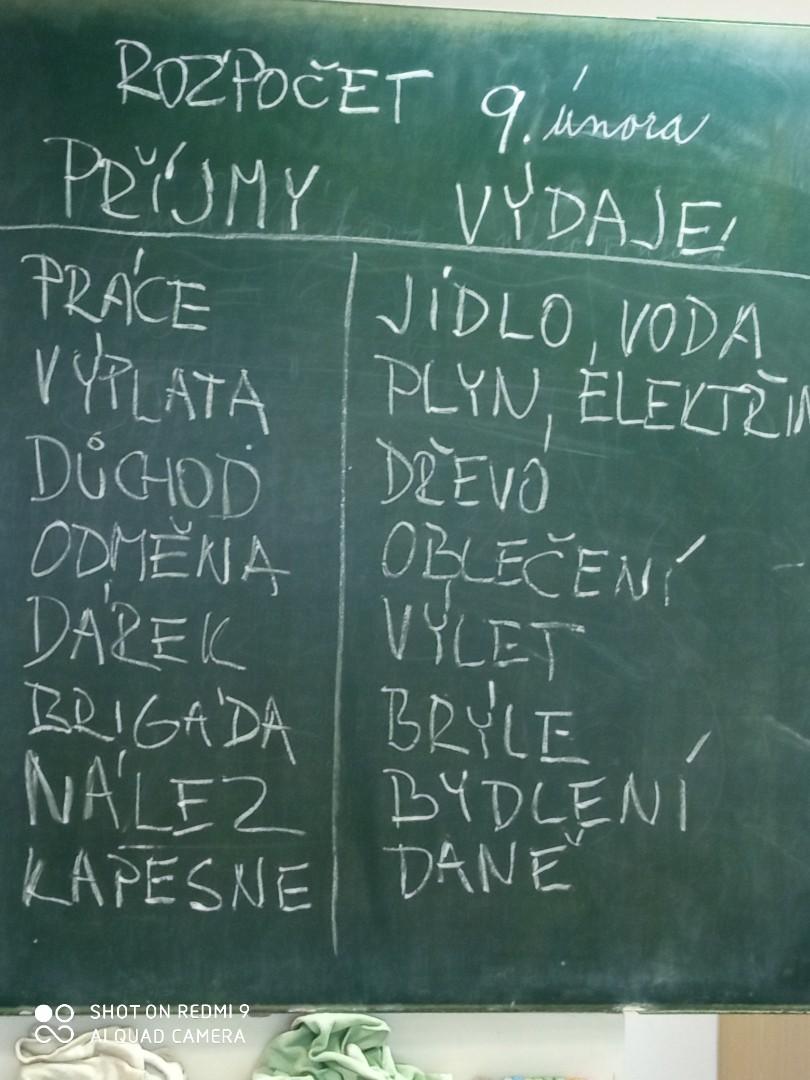 ROZPOČET 9. února
PŘÍJMY VÝDAJE
PRÁCE JÍDLO, VODA
VÝPLATA PLYN, ELEKTŘIN
DŮCHOD DŘEVO
ODMĚNA OBLEČENÍ
DÁREK VÝLET
BRIGÁDA BRÝLE
NÁLEZ BYDLENÍ
KAPESNE DANĚ
SHOT ON REDMI 9
AI QUAD CAMERA